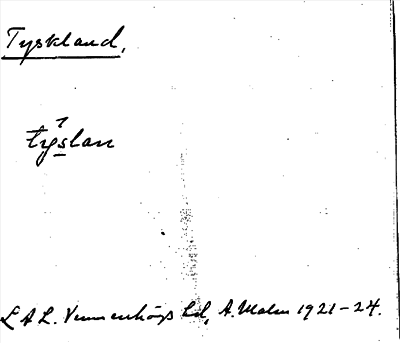 Tyskland,
týslan
L A L. Vemmenhögs hd, A. Malm 1921-24.